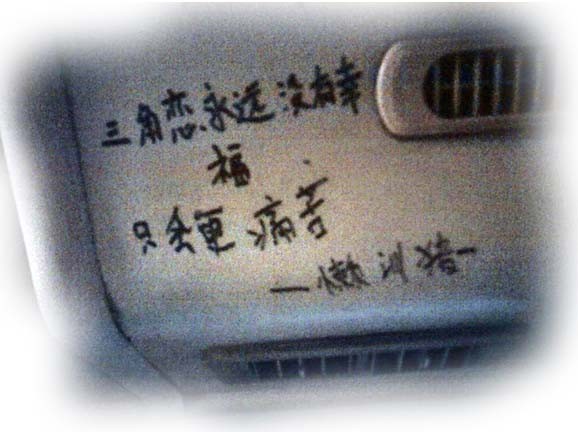 三角恋永远没有幸
福
只会更痛苦
—懒训猪—